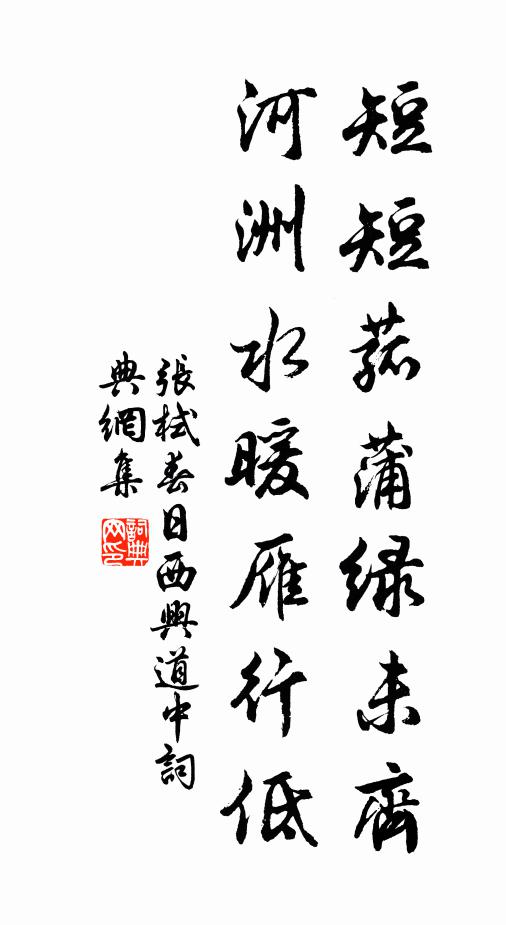 短短菰蒲緑未齊
河洲水暖雁行低
張栻春日西興道中詞
典網集
詞典网印